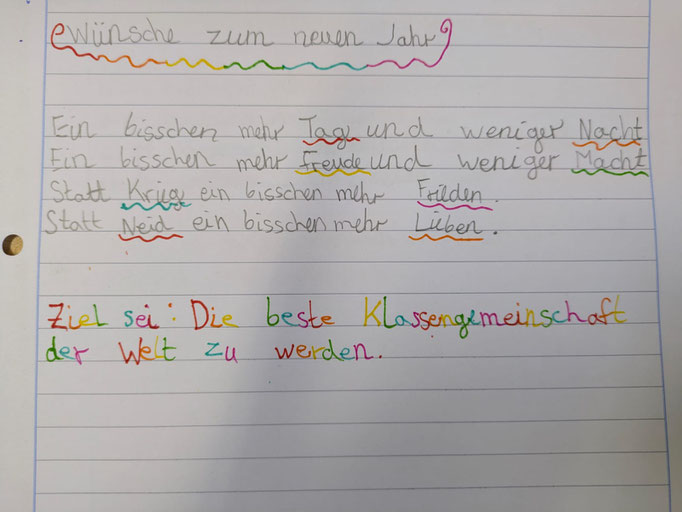 Wünsche zum neuen Jahr
Ein bisschen mehr Tag und weniger Nacht
Ein bisschen mehr Freude und weniger Macht
Statt Krieg ein bisschen mehr Frieden.
Statt Neid ein bisschen mehr Lieben.
Ziel sei: Die beste Klassengemeinschaft
der Welt zu werden.